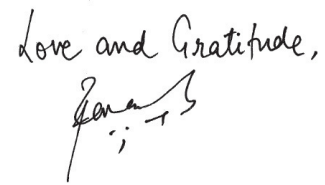 Love and Gratitude,